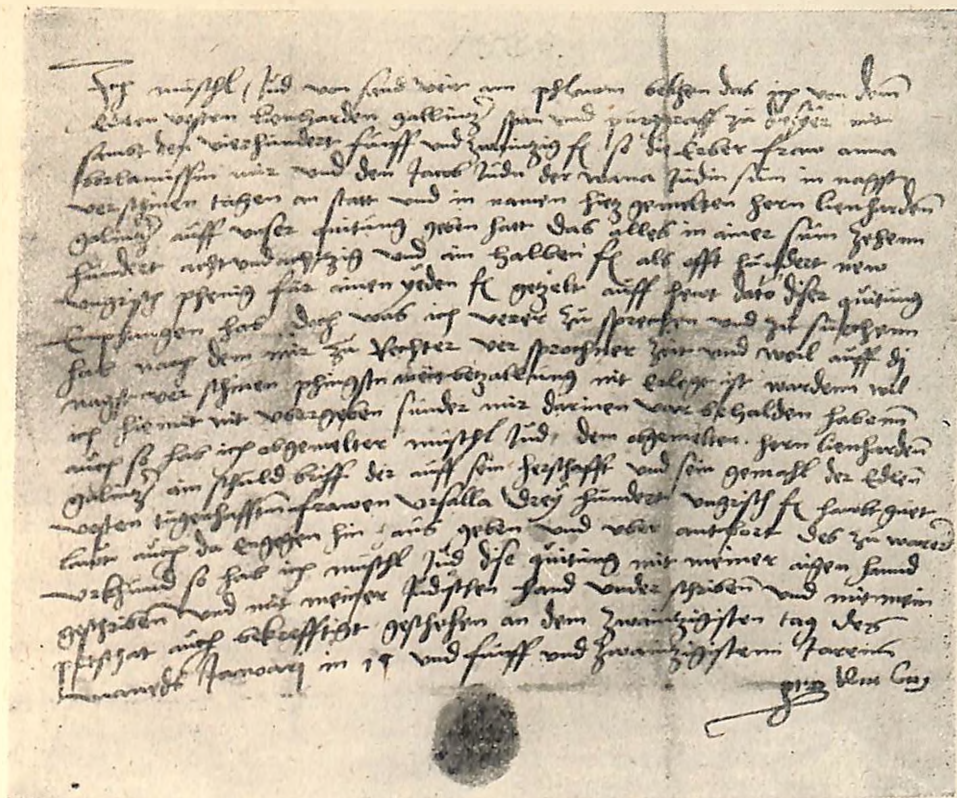 Ich müschl Jud von sand veit am pflawm bekhen das ich von dem
Edlen vesten lienharden gallimtz span und purggraff zu
sambt den vierhundert fünff und zwaintzig fl so die Erber fraw anna
mir und dem Jacob Juden der mana Judin sun in nagst
verschinen tagen an statt und in namen hietz gemelten hern lienharden
galimtz auff unser quittung geben hatt das alles in ainer sum zehenn
hundert acht und achtzig und ain halben fl als offt hundert new
ungrisch phenig für ainen yeden fl getzelt auff hewt dato diser quitung
Emphangen hab doch was ich verer zu sprechen und zu suechenn
hab nach dem mir zu Rechter ver sprochner zeit und weil auff dj
nagst ver schinen phingstn betzallung nit erlegt ist wardenn wil
ich hiemit nit ubergeben sunder mir darinen vor behalden habenn
auch so hab ich obgemelter müschl Jud dem obgemelten hern lienharden
galimtz ain schuld briff der auff sein herschafft und sein gemahl der Edlen
vesten tugenhafftn frawen ursalla drey hundert ungrisch fl haubtguet
laut auch da engegen hin aus geben und uber antwort des zu warer
urkhund so hab ich müschl Jud dise quitung mit meiner aigen hannd
geschriben und mit meiner Judischen hand under schriben und mit mein
petschat auch bekrefftigt geschehen an dem zwaintzigisten tag des
maneds Januarj in 15 und fünff und zwaintzigistenn Jarenn